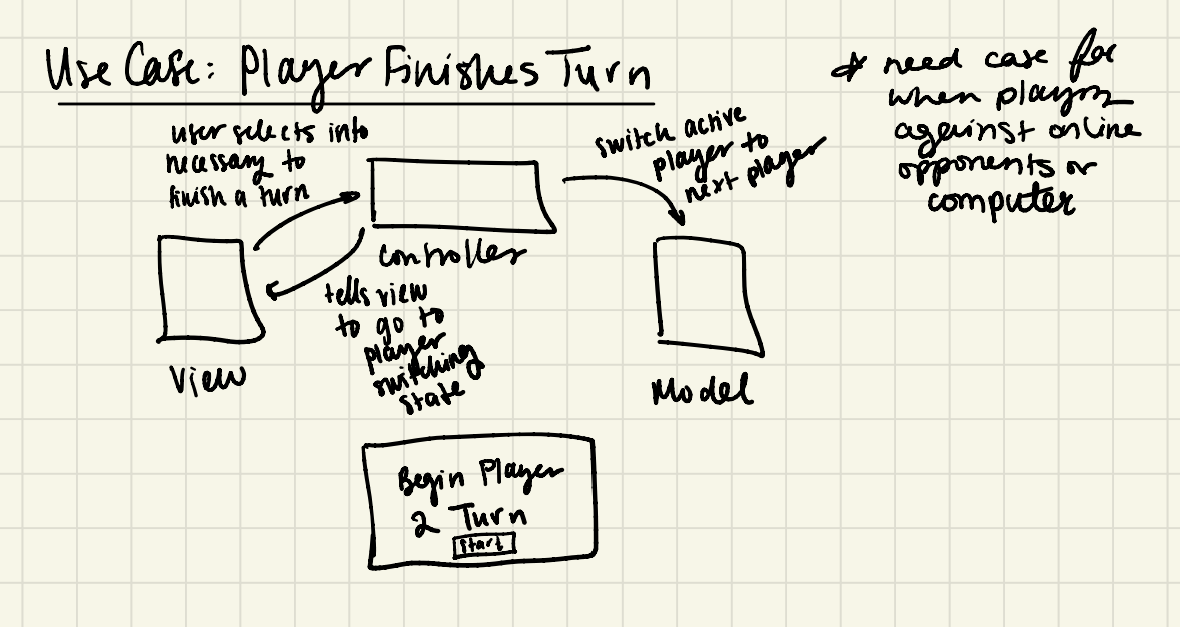 Use Case: Player Finishes Turn
* need case for
when playing
against online
opponents or
computer
user selects info
necessary to
finish a turn
switch active
player to
next player
controller
tells view
to go to
player
switching
state
View
Model
Begin Player
2 Turn
Start